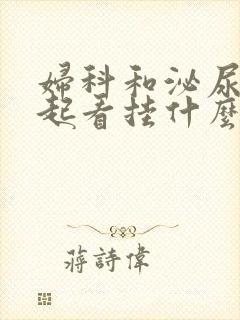 婦科和泌尿
起看挂什麼
蔣詩偉